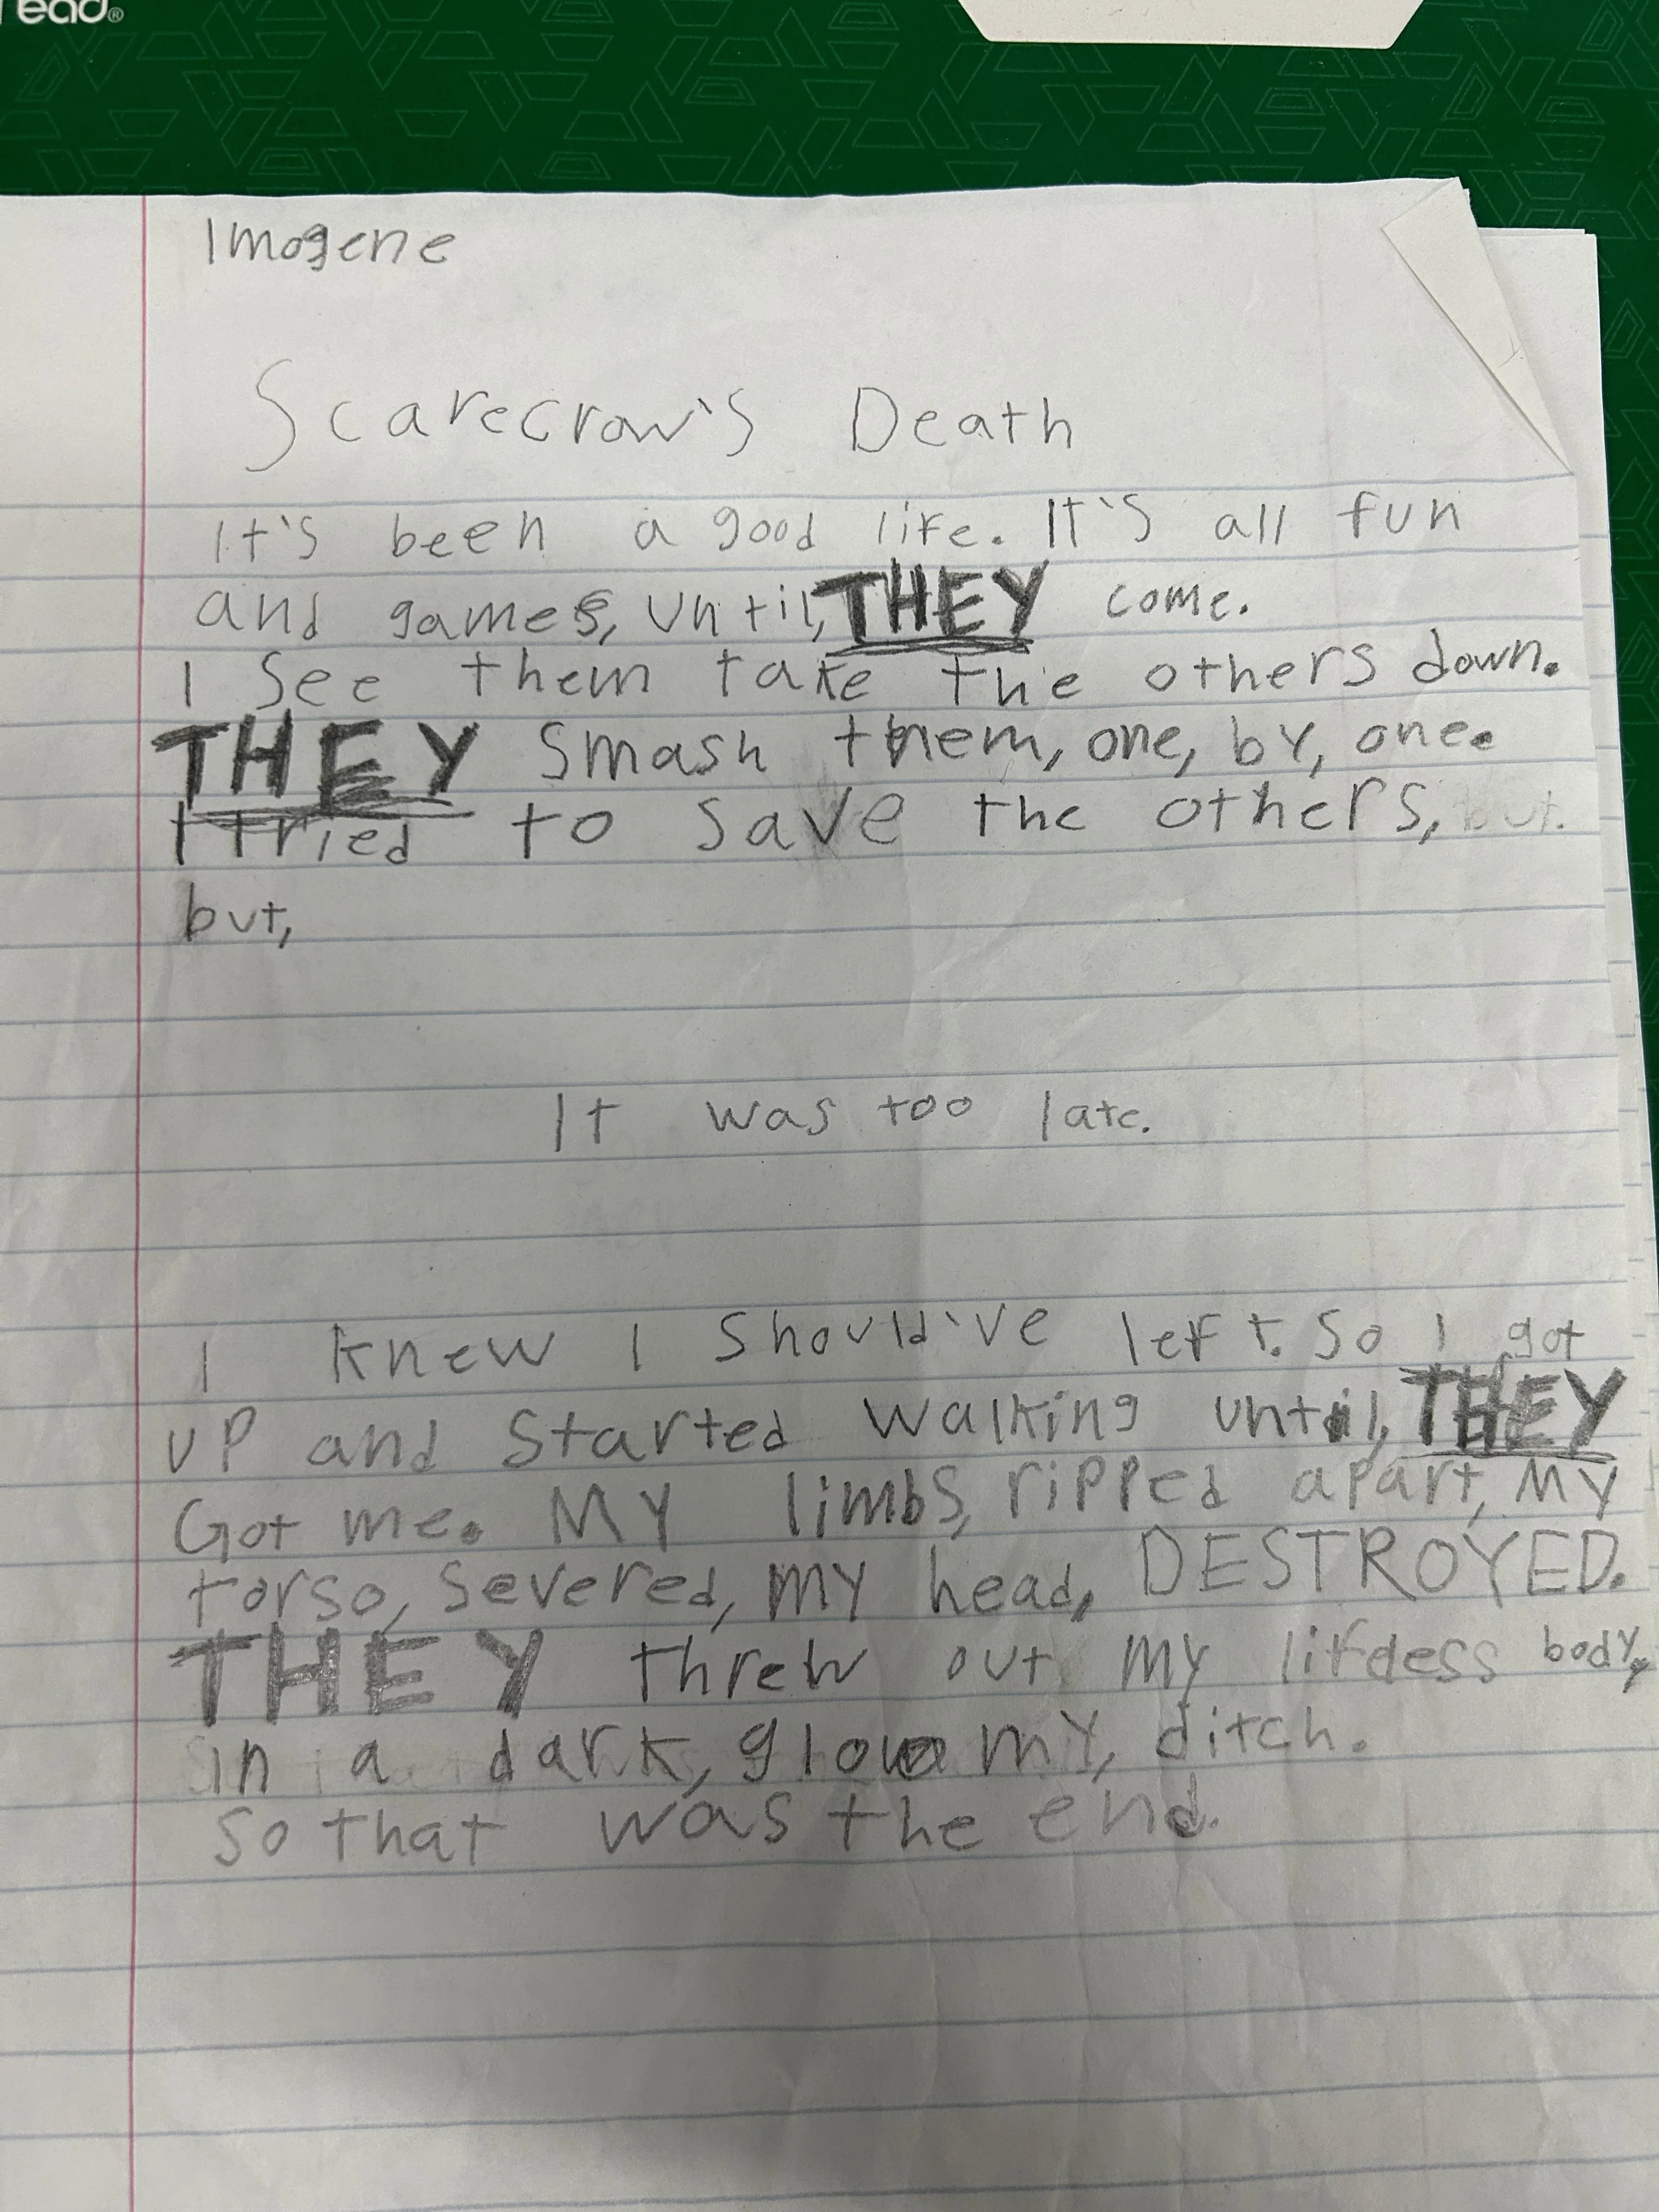 ead®
Imogene
Scarecrow's Death
It's been a good life. It's all fun
and games, until, THEY come.
I see them take the others down.
THEY smash them, one, by, one.
I tried to save the others, but.
but,
It was too late.
I knew I should've left. So I got
up and started walking until, THEY
Got me. My limbs, ripped apart, My
torso, severed, my head, DESTROYED.
THEY threw out my lifeless body,
in a dark, gloomy, ditch.
So that was the end.